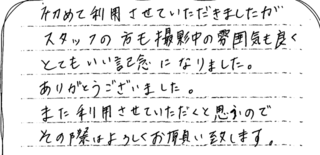 初めて利用させていただきましたが
スタッフの方も撮影中の雰囲気も良く
とてもいい記念になりました。
ありがとうございました。
また利用させていただくと思うので
その際はよろしくお願い致します。